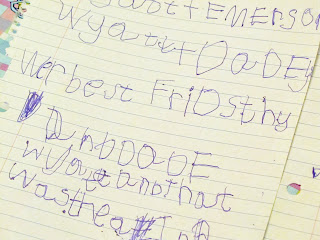 wyatt+EMERSON
wyattt+DaDEy
Werbest FriDsthy
D nbOOdE
wyate anothat
wasthea InD